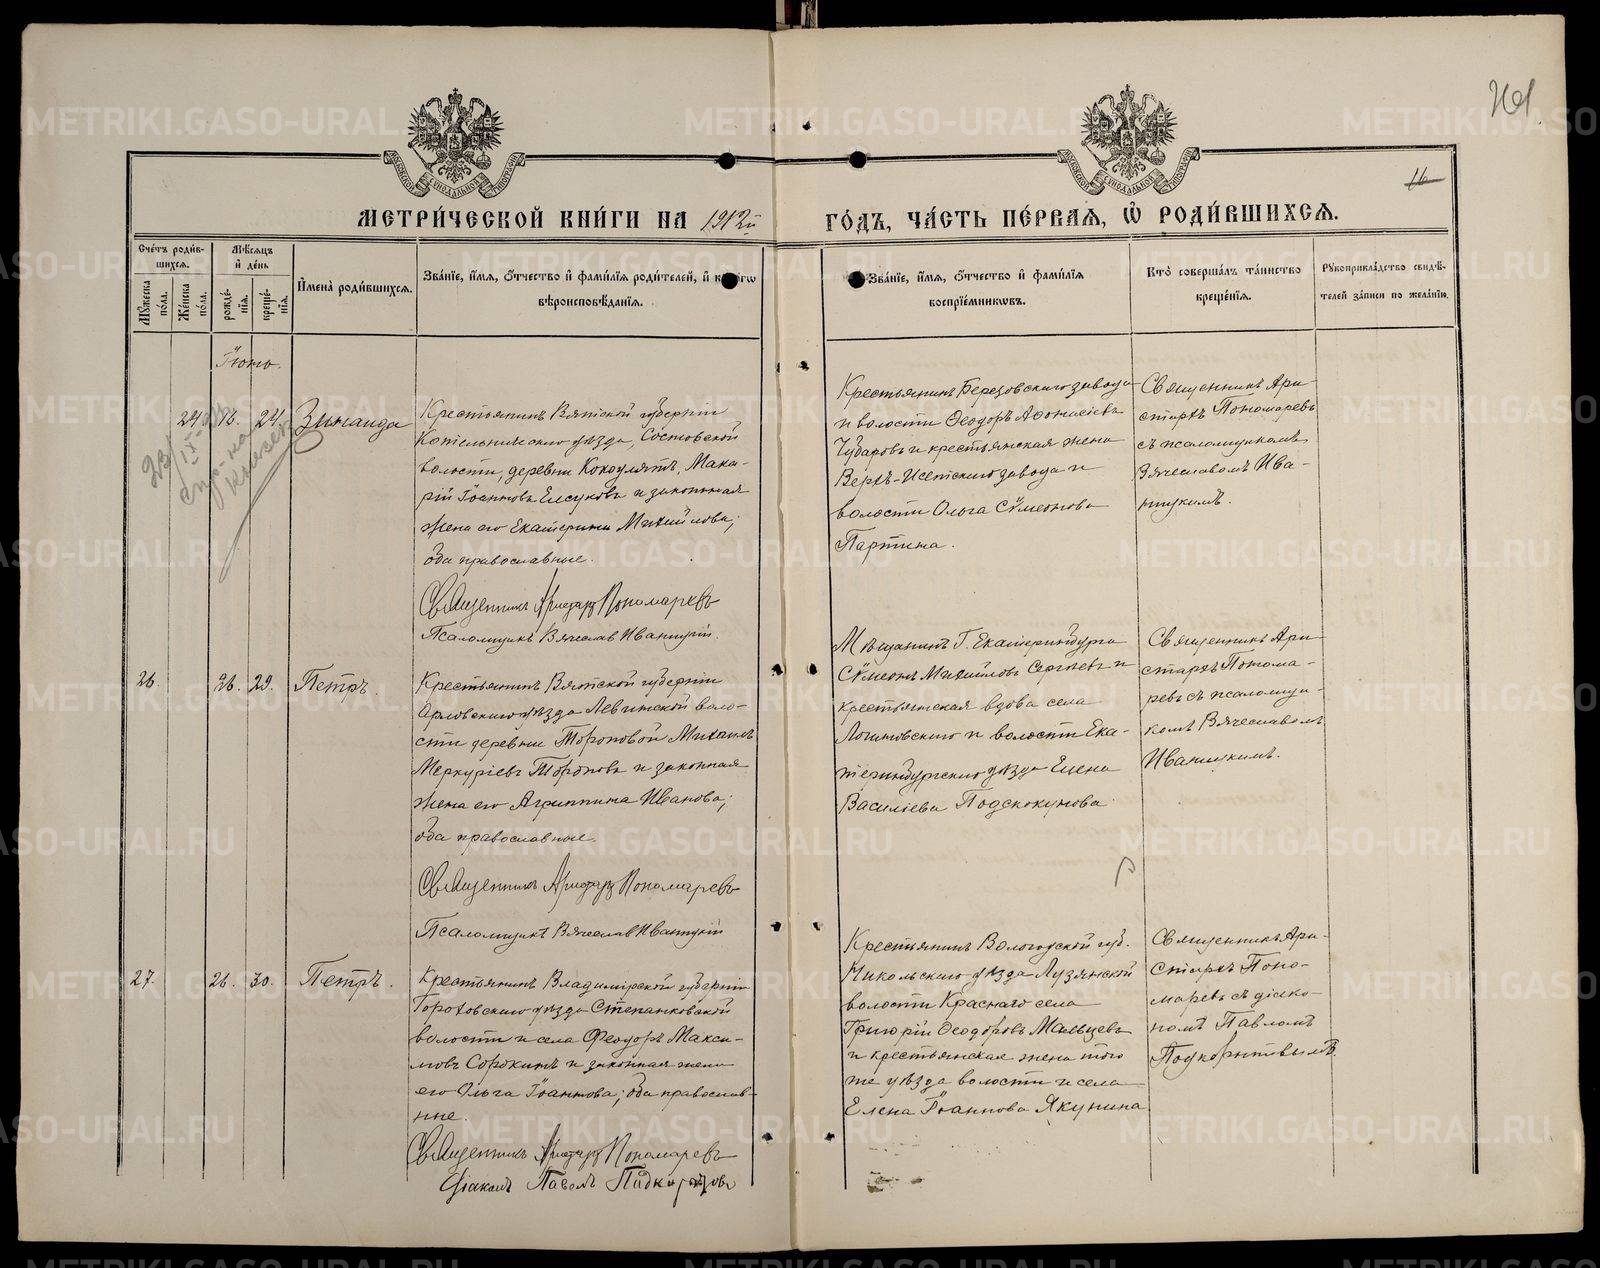 161
16
МОСКОВСКОЙ СУНОДАЛЬНОЙ ТИПОГРАФІИ
МОСКОВСКОЙ СУНОДАЛЬНОЙ ТИПОГРАФІИ
МЕТРИ́ЧЕСКОЙ КНИ́ГИ НА 1912й
ГО́ДЪ, ЧА́СТЬ ПЕ́РВАЯ, Ѡ҆ РОДИ́ВШИХСЯ.
Сче́тъ роди́в-
шихся.
Мѣ́сяцъ
и҆ де́нь
Мꙋ́жеска по́ла.
Же́нска по́ла.
рожде́-
нїя.
креще́-
нїя.
И҆мена̀ роди́вшихся.
Зва́нїе, и҆́мя, ѻ҆́тчество и҆ фами́лїя роди́телей, и҆
вѣроисповѣ́данїя.
Зва́нїе, и҆́мя, ѻ҆́тчество и҆ фами́лїя
воспрїе́мниковъ.
Кто̀ соверша́лъ та́инство
креще́нїя.
Рꙋкоприкла́дство свидѣ́-
телей за́писи по жела́нїю.
Іюнь.
24 16. 24. Зинаида
Крестьянинъ Вятской губерніи
Котельническаго уѣзда,
волости, деревни Мака-
рій Іоанновъ Елсуковъ и законная
жена его Екатерина Михайлова;
оба православные.
Священникъ Аристархъ Пономаревъ
Псаломщикъ Вячеславъ Иваницкій.
Крестьянинъ Березовскаго завода
и волости Ѳеодоръ Аѳонасіевъ
Чубаровъ и крестьянская жена
Верхъ-Исетскаго завода и
волости Ольга Сѵмеонова
Партина.
Священникъ Ари-
стархъ Пономаревъ
съ псаломщикомъ
Вячеславомъ Ива-
ницкимъ.
26. 26. 29. Петръ.
Крестьянинъ Вятской губерніи
Орловскаго уѣзда Левинской воло-
сти деревни Тороповой Михаилъ
Меркуріевъ Тороповъ и законная
жена его Агриппина Иванова;
оба православные.
Священникъ Аристархъ Пономаревъ
Псаломщикъ Вячеславъ Иваницкій
Мѣщанинъ г. Екатеринбурга
Сѵмеонъ Михайловъ Сергѣевъ и
крестьянская вдова села
Логиновскаго и волости Ека-
теринбургскаго уѣзда Елена
Василіева Подскокунова.
Священникъ Ари-
стархъ Понома-
ревъ съ псаломщи-
комъ Вячеславомъ
Иваницкимъ.
27. 26. 30. Петръ.
Крестьянинъ Владимірской губерніи
Гороховскаго уѣзда Степанковской
волости и села Ѳеодоръ Макси-
мовъ Сорокинъ и законная жена
его Ольга Іоаннова; оба православ-
ные.
Священникъ Аристархъ Пономаревъ
Діаконъ Павелъ Подкорытовъ
Крестьянинъ Вологодской губ.
Никольскаго уѣзда Лузянской
волости Краснаго села
Григорій Ѳеодоровъ Мальцевъ
и крестьянская жена того
же уѣзда волости и села
Елена Іоаннова Якунина
Священникъ Ари-
стархъ Поно-
маревъ съ діако-
номъ Павломъ
Подкорытовымъ.
METRIKI.GASO-URAL.RU